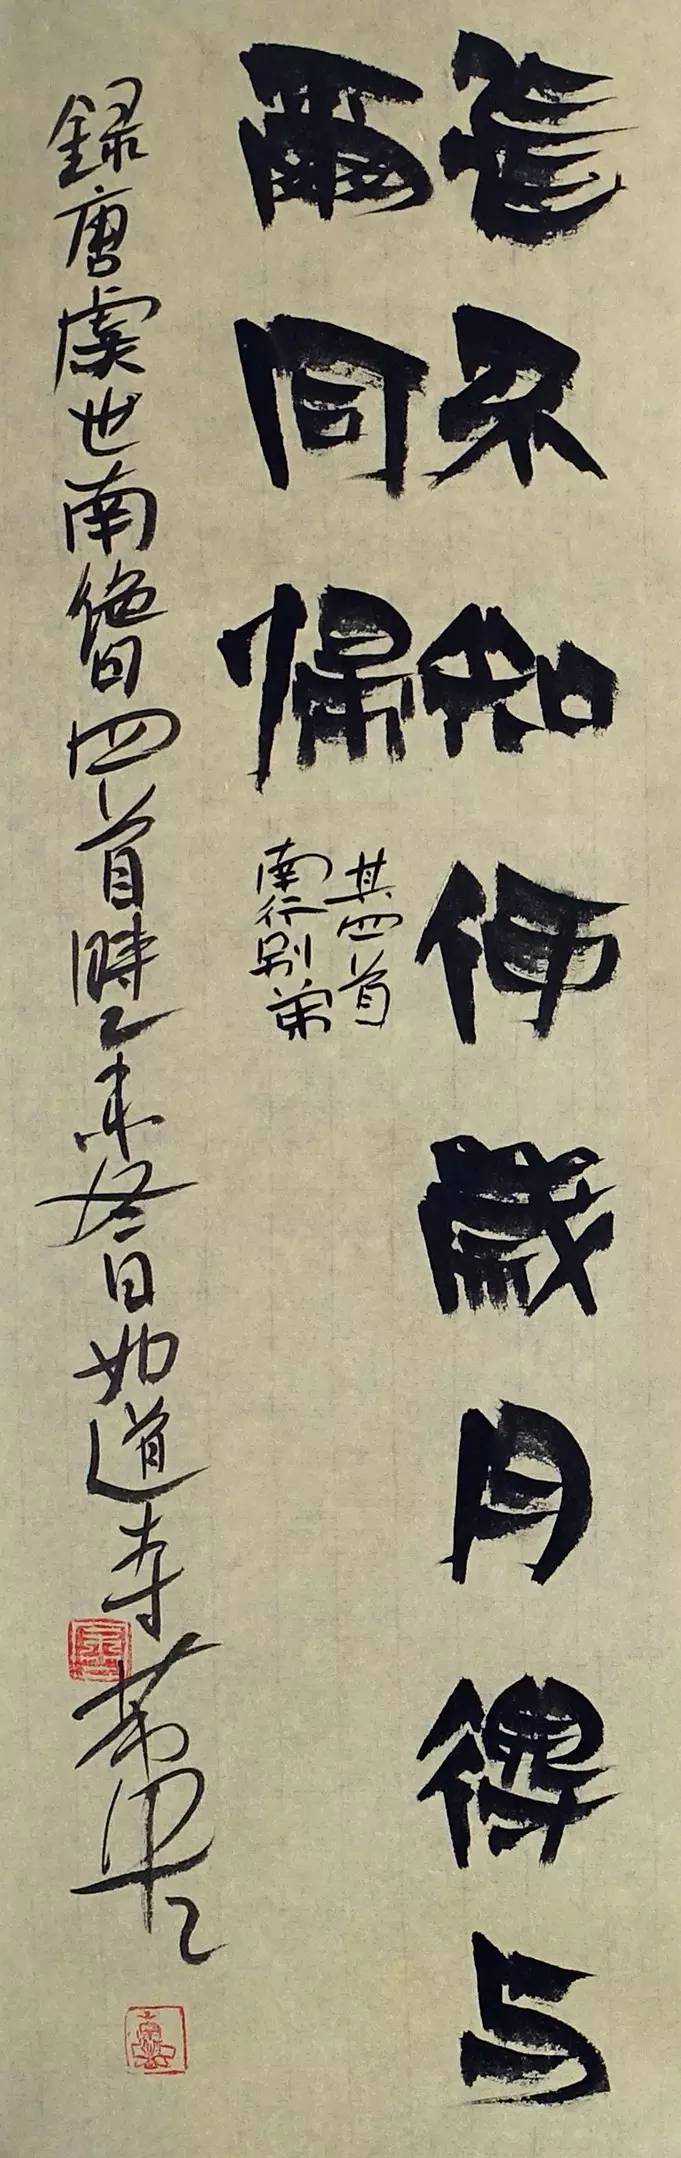 飛不知何歲月得与
爾同帰
其四首
南行别弟
錄唐虞世南絕句四首時乙未冬日如道寺